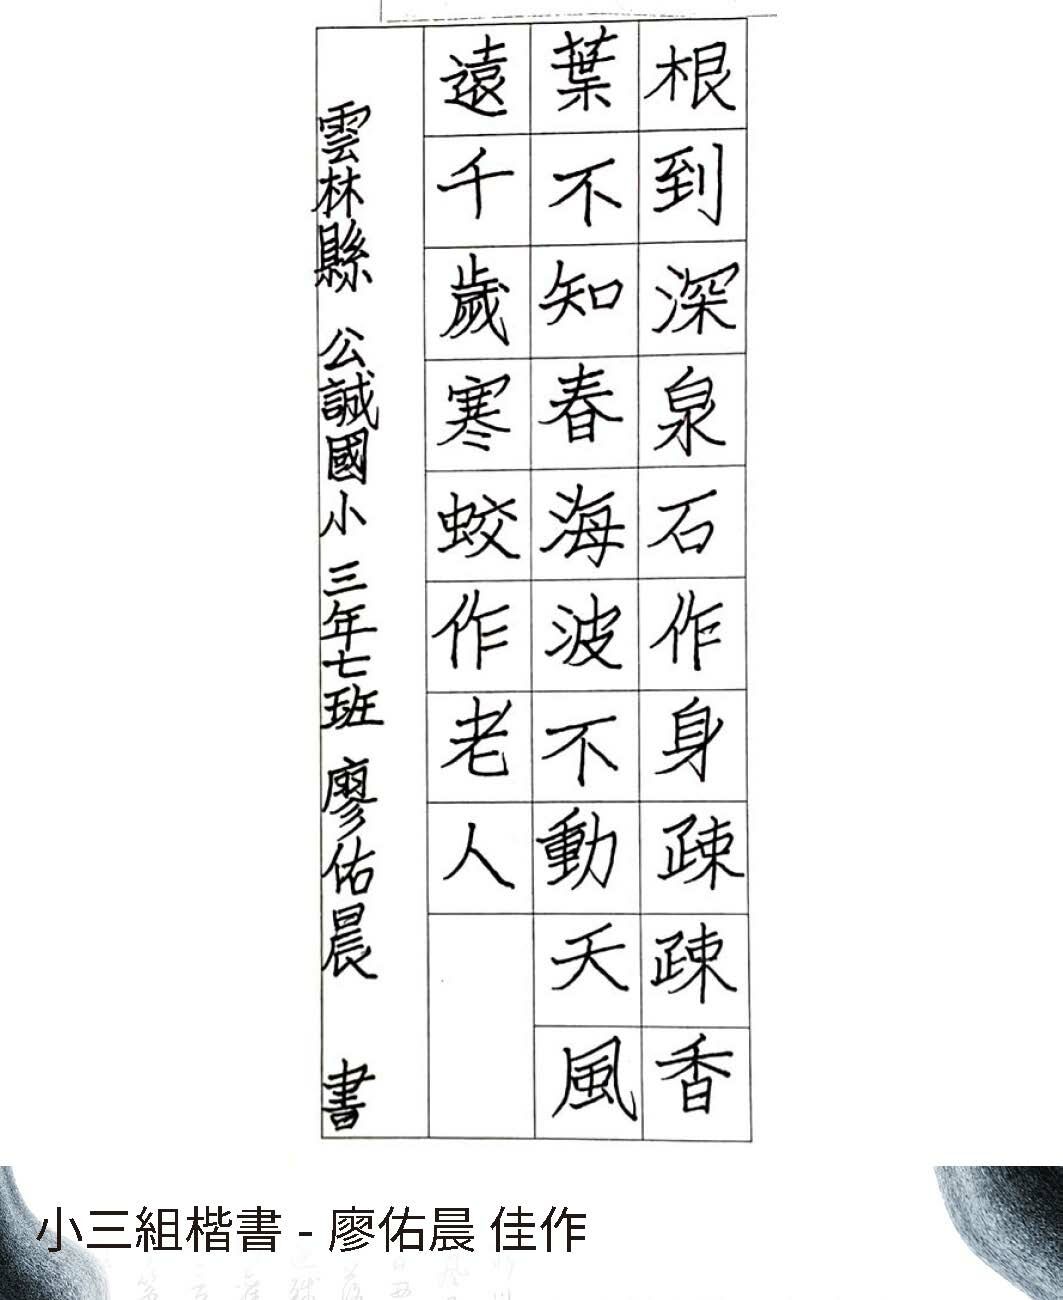 根到深泉石作身疎疎香
葉不知春海波不動天風
遠千歲寒蛟作老人
雲林縣 公誠國小 三年七班 廖佑晨 書
小三組楷書 - 廖佑晨 佳作